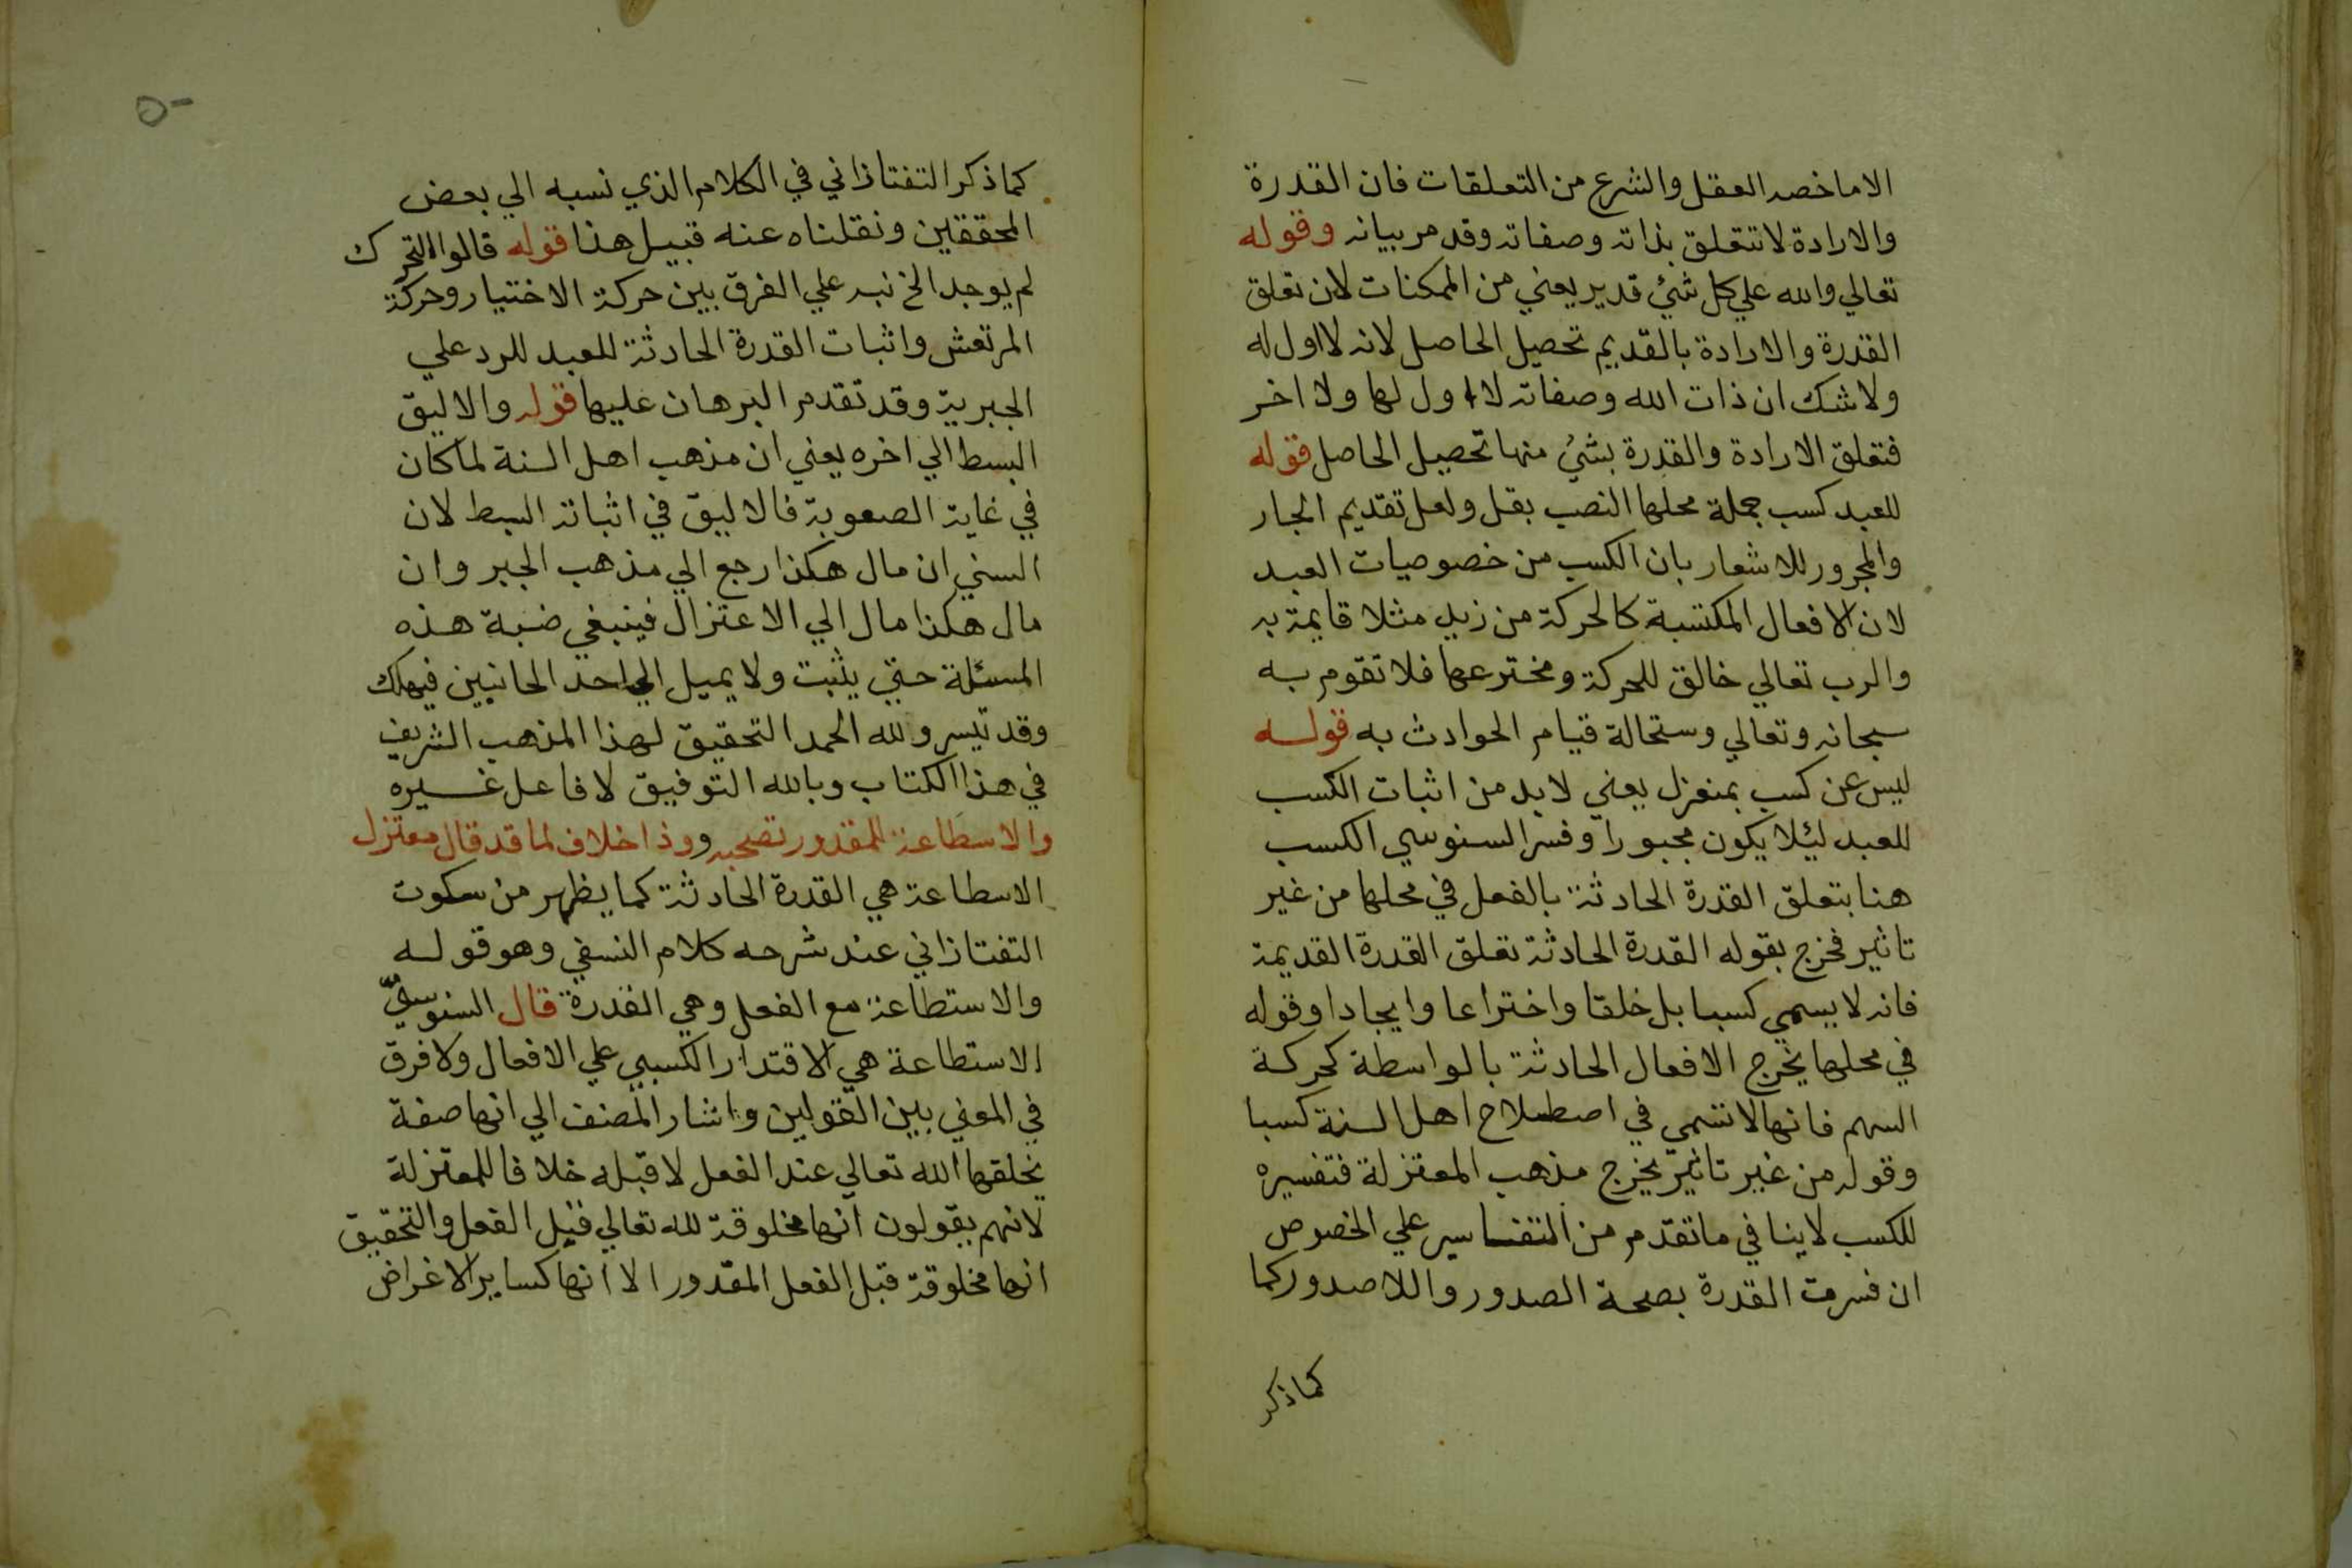 الا ما خصه العقل والشرع من التعلقات فان القدرة
والارادة لا تتعلق بذاته وصفاته وقد مر بيانه وقوله
تعالي والله علي كل شئ قدير يعني من الممكنات لان تعلق
القدرة والارادة بالقديم تحصيل الحاصل لانه لا اول له
ولا شك ان ذات الله وصفاته لا اول لها ولا اخر
فتعلق الارادة والقدرة بشئ منها تحصيل الحاصل قوله
للعبد كسب جملة محلها النصب بقل ولعل تقديم الجار
والمجرور للاشعار بان الكسب من خصوصيات العبد
لان الافعال المكتسبة كالحركة من زيد مثلا قايمة به
والرب تعالي خالق للحركة ومخترعها فلا تقوم به
سبحانه وتعالي وستحالة قيام الحوادث به قوله
ليس عن كسب بمنعزل يعني لا بد من اثبات الكسب
للعبد ليئلا يكون مجبورا وفسر السنوسي الكسب
هنا بتعلق القدرة الحادثة بالفعل في محلها من غير
تاثير فخرج بقوله القدرة الحادثة تعلق القدرة القديمة
فانه لا يسمي كسبا بل خلقا واختراعا وايجادا وقوله
في محلها يخرج الافعال الحادثة بالواسطة كحركة
السهم فانها لا تسمي في اصطلاح اهل السنة كسبا
وقوله من غير تاثير يخرج مذهب المعتزلة فتفسيره
للكسب لا ينافي ما تقدم من التفاسير علي الخصوص
ان فسرت القدرة بصحة الصدور واللا صدور كما
كما ذكر
٥٠
كما ذكر التفتازاني في الكلام الذي نسبه الي بعض
المحققين ونقلناه عنه قبيل هذا قوله قالوا التحرك
لم يوجد الخ نبه علي الفرق بين حركة الاختيار وحركة
المرتعش واثبات القدرة الحادثة للعبد للرد علي
الجبرية وقد تقدم البرهان عليها قوله والاليق
البسط الي اخره يعني ان مذهب اهل السنة لما كان
في غاية الصعوبة فالاليق في اثباته البسط لان
السني ان مال هكذا رجع الي مذهب الجبر وان
مال هكذا مال الي الاعتزال فينبغي ضبة هذه
المسئلة حتي يثبت ولا يميل الي احد الجانبين فيهلك
وقد تيسر ولله الحمد التحقيق لهذا المذهب الشريف
في هذا الكتاب وبالله التوفيق لا فاعل غيره
والاسطاعة للمقدور تصحبه وذا خلاف لما قد قال معتزل
الاسطاعة هي القدرة الحادثة كما يظهر من سكوت
التفتازاني عند شرحه كلام النسفي وهو قوله
والاستطاعة مع الفعل وهي القدرة قال السنوسي
الاستطاعة هي الاقتدار الكسبي علي الافعال ولا فرق
في المعني بين القولين واشار المصنف الي انها صفة
يخلقها الله تعالي عند الفعل لا قبله خلافا للمعتزلة
لانهم يقولون انها مخلوقة لله تعالي قبل الفعل والتحقيق
انها مخلوقة قبل الفعل المقدور الا انها كساير الاغراض